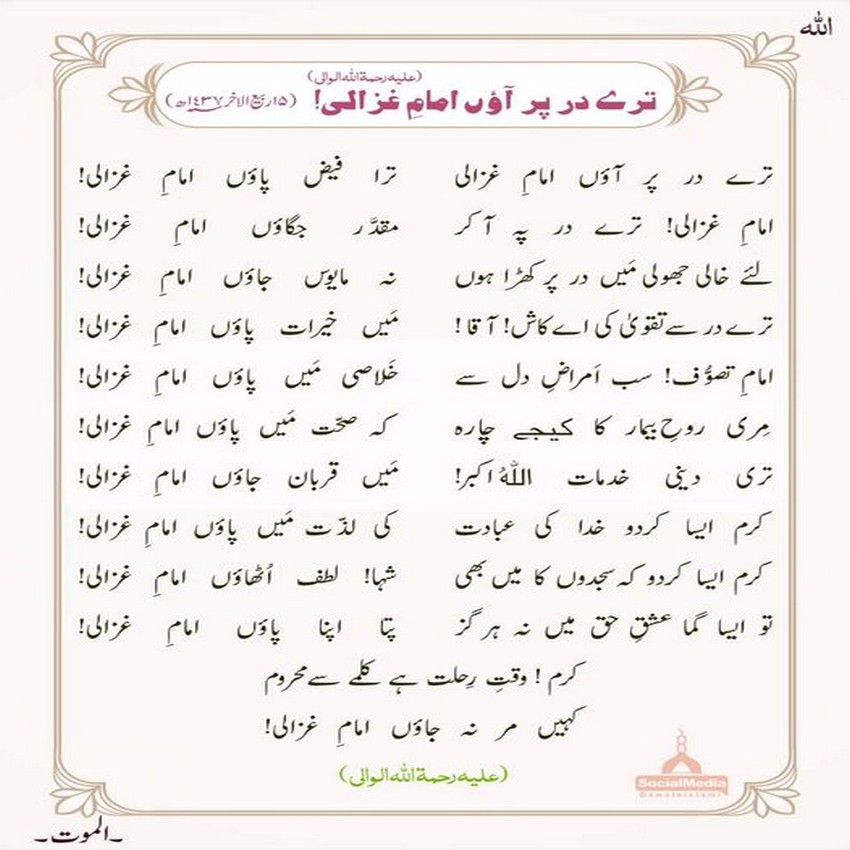 الله
(علیہ رحمۃ اللہ الوالی)
ترے در پر آؤں امامِ غزالی! (۱۵ربیع الآخر ۱٤۳۷ھ)
ترے در پر آؤں امامِ غزالی ترا فیض پاؤں امامِ غزالی!
امامِ غزالی! ترے در پہ آ کر مقدَّر جگاؤں امامِ غزالی!
لئے خالی جھولی مَیں در پر کھڑا ہوں نہ مایوس جاؤں امامِ غزالی!
ترے در سے تقویٰ کی اے کاش! آقا! مَیں خیرات پاؤں امامِ غزالی!
امامِ تصوُّف! سب اَمراضِ دل سے خَلاصی مَیں پاؤں امامِ غزالی!
مِری روحِ بیمار کا کیجے چارہ کہ صحّت مَیں پاؤں امامِ غزالی!
تری دینی خدمات اللہُ اکبر! مَیں قربان جاؤں امامِ غزالی!
کرم ایسا کردو خدا کی عبادت کی لذّت مَیں پاؤں امامِ غزالی!
کرم ایسا کردو کہ سجدوں کا میں بھی شہا! لطف اُٹھاؤں امامِ غزالی!
تو ایسا گما عشقِ حق میں نہ ہرگز پتا اپنا پاؤں امامِ غزالی!
کرم! وقتِ رِحلت ہے کلمے سے محروم
کہیں مر نہ جاؤں امامِ غزالی!
(علیہ رحمۃ اللہ الوالی)
SocialMedia
Dawateislami
۔الموت۔